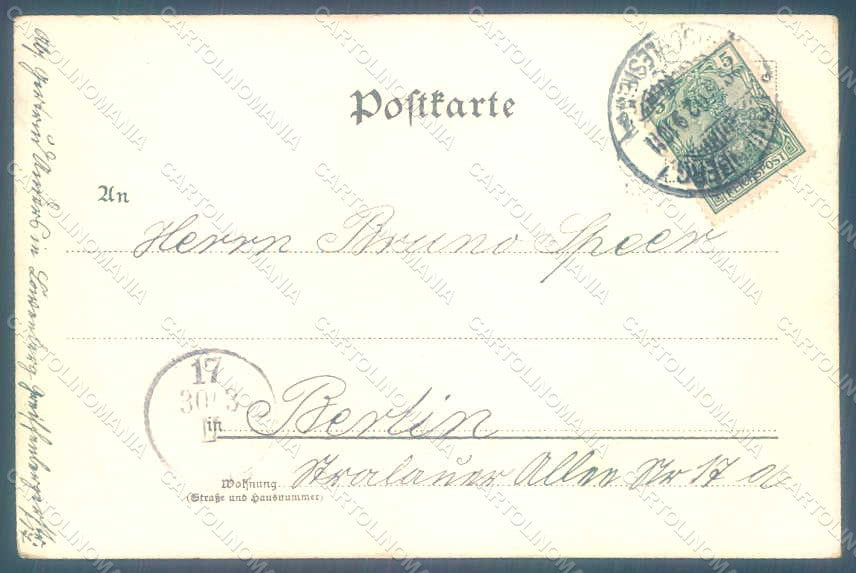 Postkarte
5
REICHSPOST
An
Herrn Bruno Speer
17
30/3
in Berlin
Wohnung
(Straße und Hausnummer)
Stralauer Allee Nr 17 a
in Löwenberg
CARTOLINOMANIA